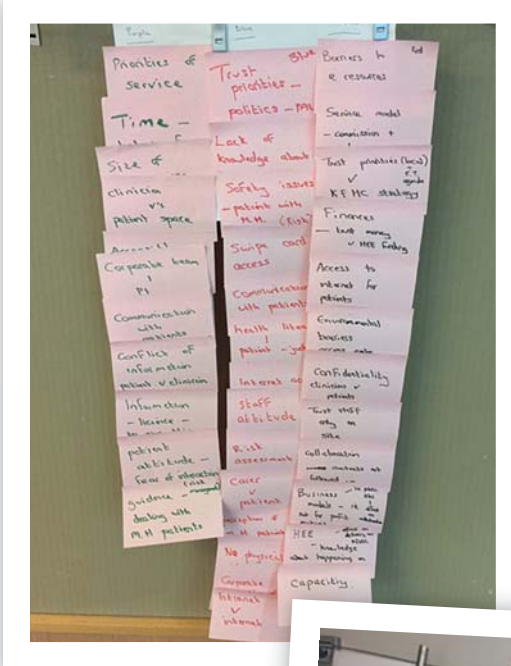 Purple
Blue
Priorities of
service
Time –
Size of
clinician
v's
patient space
Corporate team
PI
Communication
with
patients
Conflict of
information
patient v clinician
Information
– licence –
patient
attitude –
fear of interaction
guidance –
dealing with
M.H patients
Blue
Trust
priorities –
politics –
Lack of
knowledge about
Safety issues
– patient with
M.H. (Risk)
Swipe card
access
Communication
with patients
health
patient –
Internet
Staff
attitude
Risk
assessment
Carer
v
patient
M.H patient
No physical
Corporate
Intranet
v
internet
Red
Barriers to
e resources
Service model
– commission +
Trust priorities (local)
v
KFMC strategy
Finances
– trust money
v HEE funding
Access to
internet for
patients
Environmental
barriers
Confidentiality
clinicians v
patients
Trust staff
only on
site
Collaboration
followed
Business
models –
not for profit
HEE
– knowledge
about happening
Capacity.